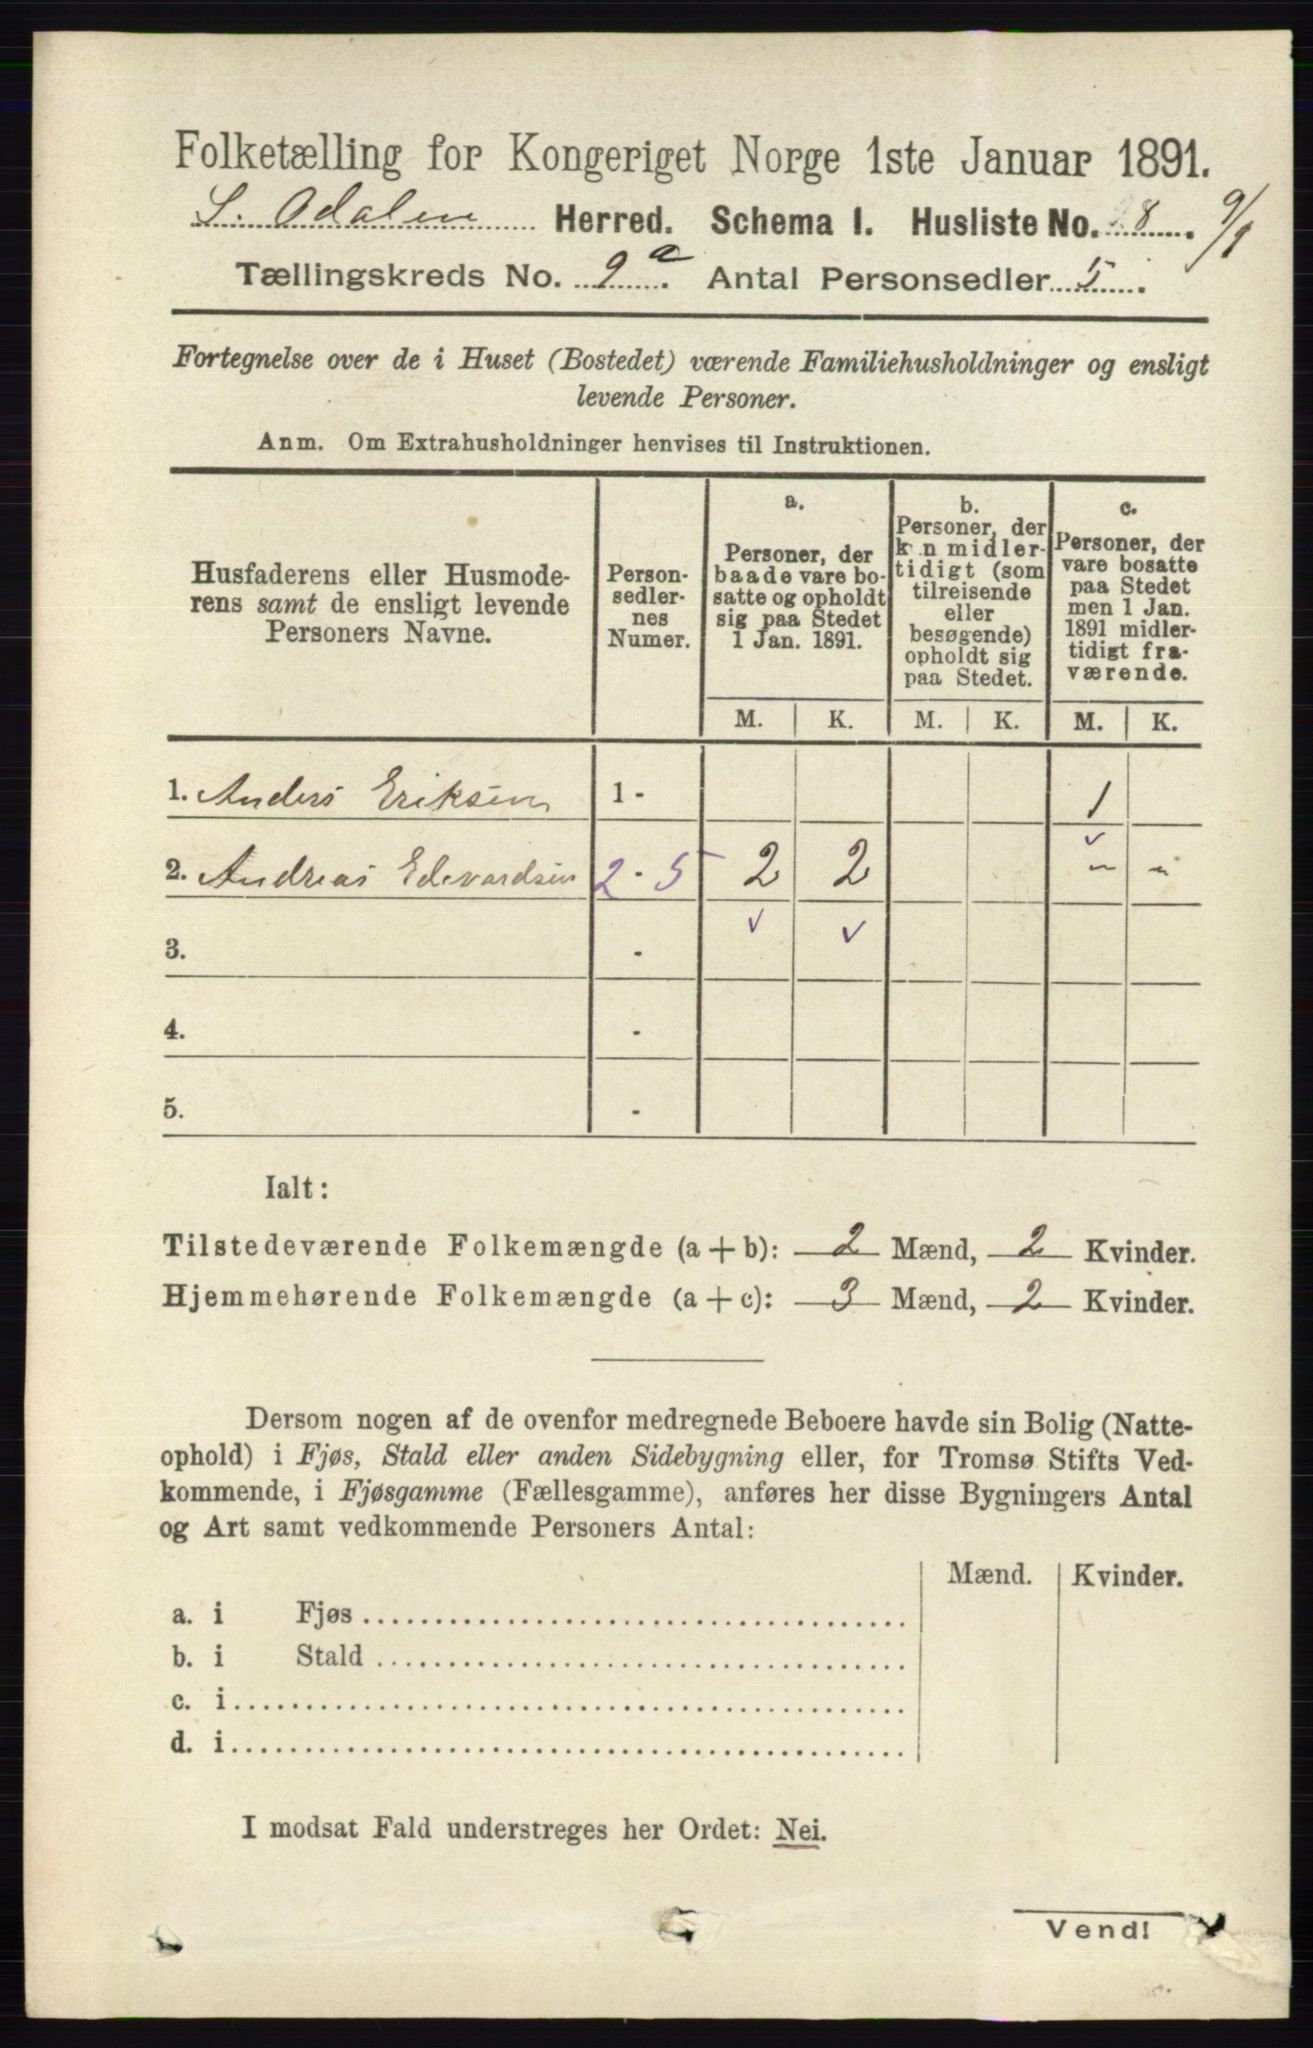 Folketælling for Kongeriget Norge 1ste Januar 1891.
S. Odalen Herred. Schema I. Husliste No. 28. 9/1
Tællingskreds No. 9a. Antal Personsedler 5.
Fortegnelse over de i Huset (Bostedet) værende Familiehusholdninger og ensligt
levende Personer.
Anm. Om Extrahusholdninger henvises til Instruktionen.
Husfaderens eller Husmode-
rens samt de ensligt levende
Personers Navne.
Person-
sedler-
nes
Numer.
a.
Personer, der
baade vare bo-
satte og opholdt
sig paa Stedet
1 Jan. 1891.
b.
Personer, der
kun midler-
tidigt (som
tilreisende
eller
besøgende)
opholdt sig
paa Stedet.
c.
Personer, der
vare bosatte
paa Stedet
men 1 Jan.
1891 midler-
tidigt fra-
værende.
M. K. M. K. M. K.
1. Anders Eriksen 1 - 1
2. Andreas Edevardsen 2 - 5 2 2 " "
3. -
4. -
5. -
Ialt:
Tilstedeværende Folkemængde (a + b): 2 Mænd, 2 Kvinder.
Hjemmehørende Folkemængde (a + c): 3 Mænd, 2 Kvinder.
Dersom nogen af de ovenfor medregnede Beboere havde sin Bolig (Natte-
ophold) i Fjøs, Stald eller anden Sidebygning eller, for Tromsø Stifts Ved-
kommende, i Fjøsgamme (Fællesgamme), anføres her disse Bygningers Antal
og Art samt vedkommende Personers Antal:
Mænd. Kvinder.
a. i Fjøs
b. i Stald
c. i
d. i
I modsat Fald understreges her Ordet: Nei.
Vend!